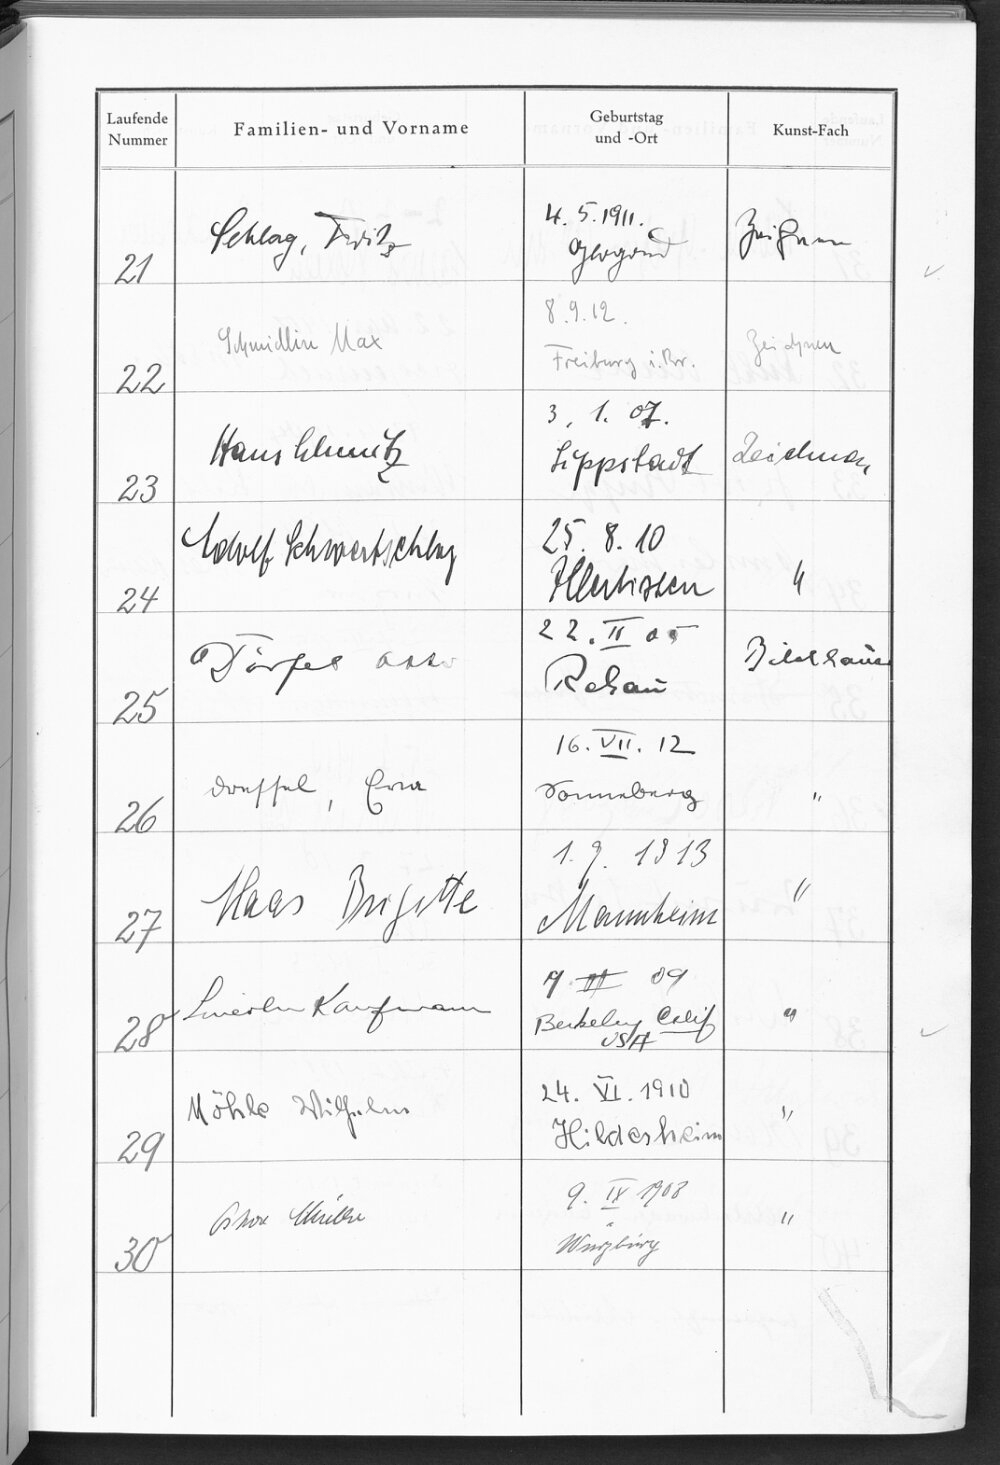 Laufende Nummer
Familien- und Vorname
Geburtstag und -Ort
Kunst-Fach
21
Schlag, Fritz
4. 5. 1911.
Zeichnen
22
Schmidlin Max
8. 9. 12.
Freiburg i. Br.
Zeichnen
23
Hans Schmitz
3. 1. 07.
Lippstadt
Zeichnen
24
Adolf Schwertschlag
25. 8. 10
Illertissen
"
25
Dörfel Otto
22. II 05
Rehau
Bildhauer
26
Dressel, Erna
16. VII. 12
Sonneberg
"
27
Haas Brigitte
1. 9. 1913
Mannheim
"
28
Lincoln Kaufmann
09
Berkeley Calif
USA
"
29
Möhle Wilhelm
24. VI. 1910
Hildesheim
"
30
Oskar Müller
9. IX 1908
Würzburg
"